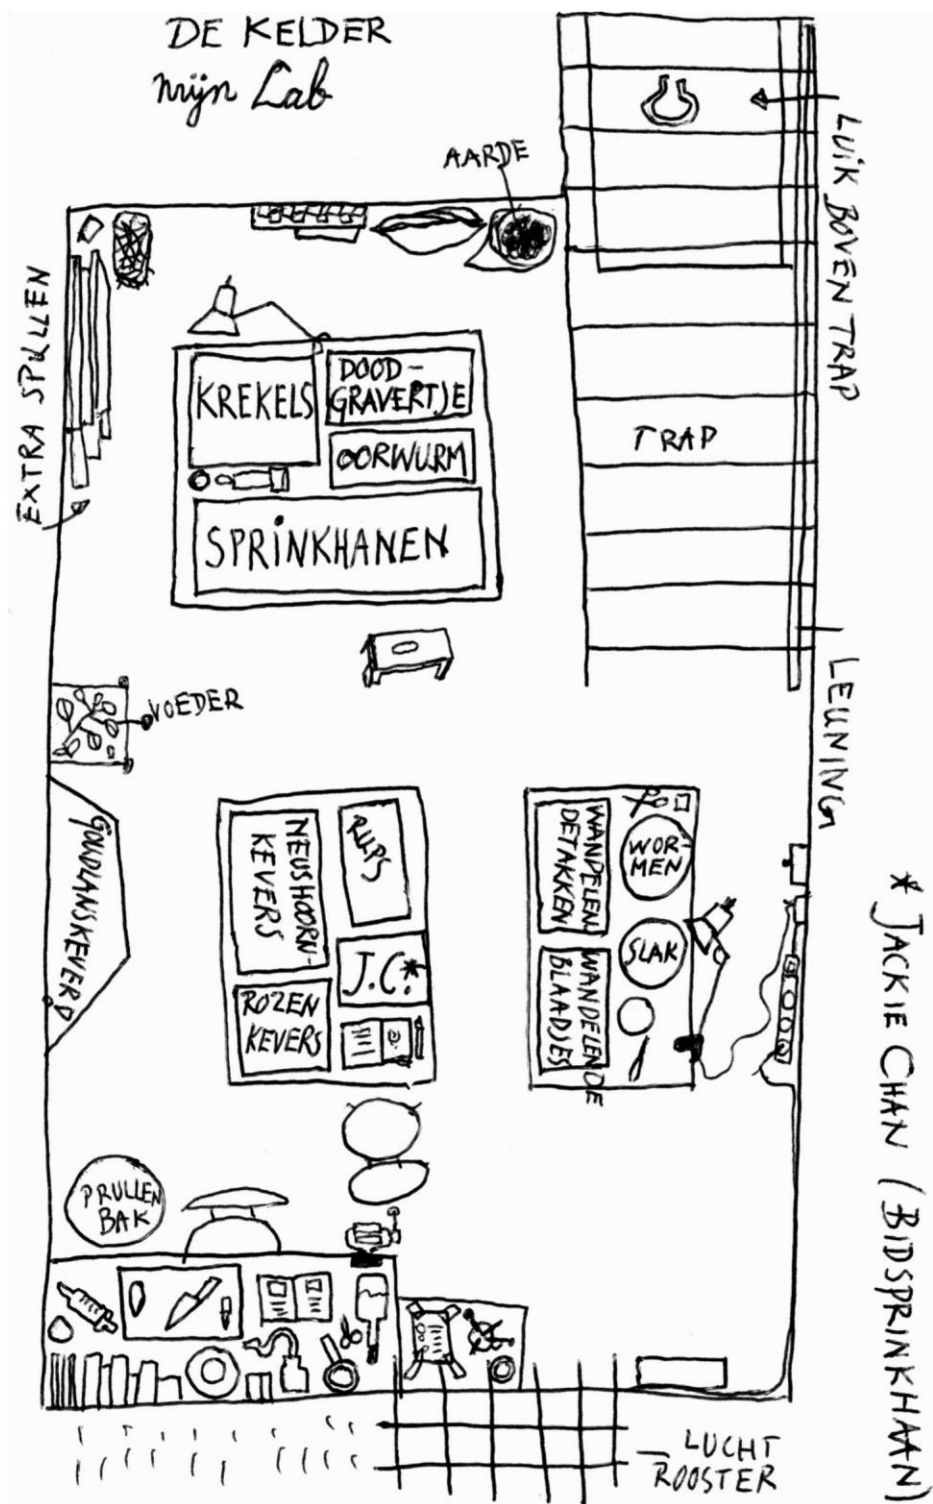 DE KELDER
mijn Lab
AARDE
LUIK BOVEN TRAP
EXTRA SPULLEN
KREKELS
DOOD-
GRAVERTJE
OORWURM
SPRINKHANEN
TRAP
LEUNING
VOEDER
GOUDLANSKEVER
NEUSHOORN-
KEVERS
RUPS
J.C.*
ROZEN
KEVERS
WANDELEN
DETAKKEN
WOR-
MEN
SLAK
WANDELENDE
BLAADJES
* JACKIE CHAN (BIDSPRINKHAAN)
PRULLEN
BAK
LUCHT
ROOSTER